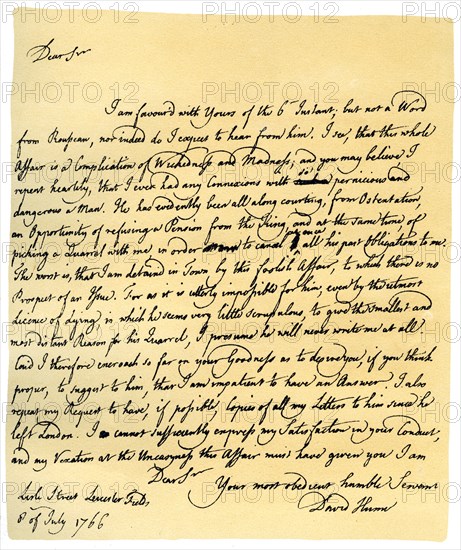 Dear Sir
I am favour'd with Yours of the 6 Instant; but not a Word
from Rousseau, nor indeed do I expect to hear from him. I see, that the whole
Affair is a Complication of Wickedness and Madness; and you may believe I
repent heartily, that I ever had any Connexions with so pernicious and
dangerous a Man. He has evidently been all along courting, from Ostentation,
an Opportunity of refusing a Pension from the King, and at the same time, of
picking a Quarrel with me, in order to cancel at once all his past Obligations to me.
The worst is, that I am detained in Town by this foolish Affair, to which there is no
Prospect of an Issue. For as it is utterly impossible for him, even by the utmost
Licence of Lying, in which he seems very little scrupulous, to give the smallest and
most distant Reason for his Quarrel, I presume he will never write me at all.
And I therefore encroach so far on your Goodness as to desire you, if you think
proper, to suggest to him, that I am impatient to have an Answer. I also
repeat my Request to have, if possible, Copies of all my Letters to him since he
left London. I cannot sufficiently express my Satisfaction in your Conduct,
and my Vexation at the Uneasyness this Affair must have given you I am
Dear Sir
Your most obedient humble Servant
David Hume
Lisle Street Leicester Fields
8 of July 1766